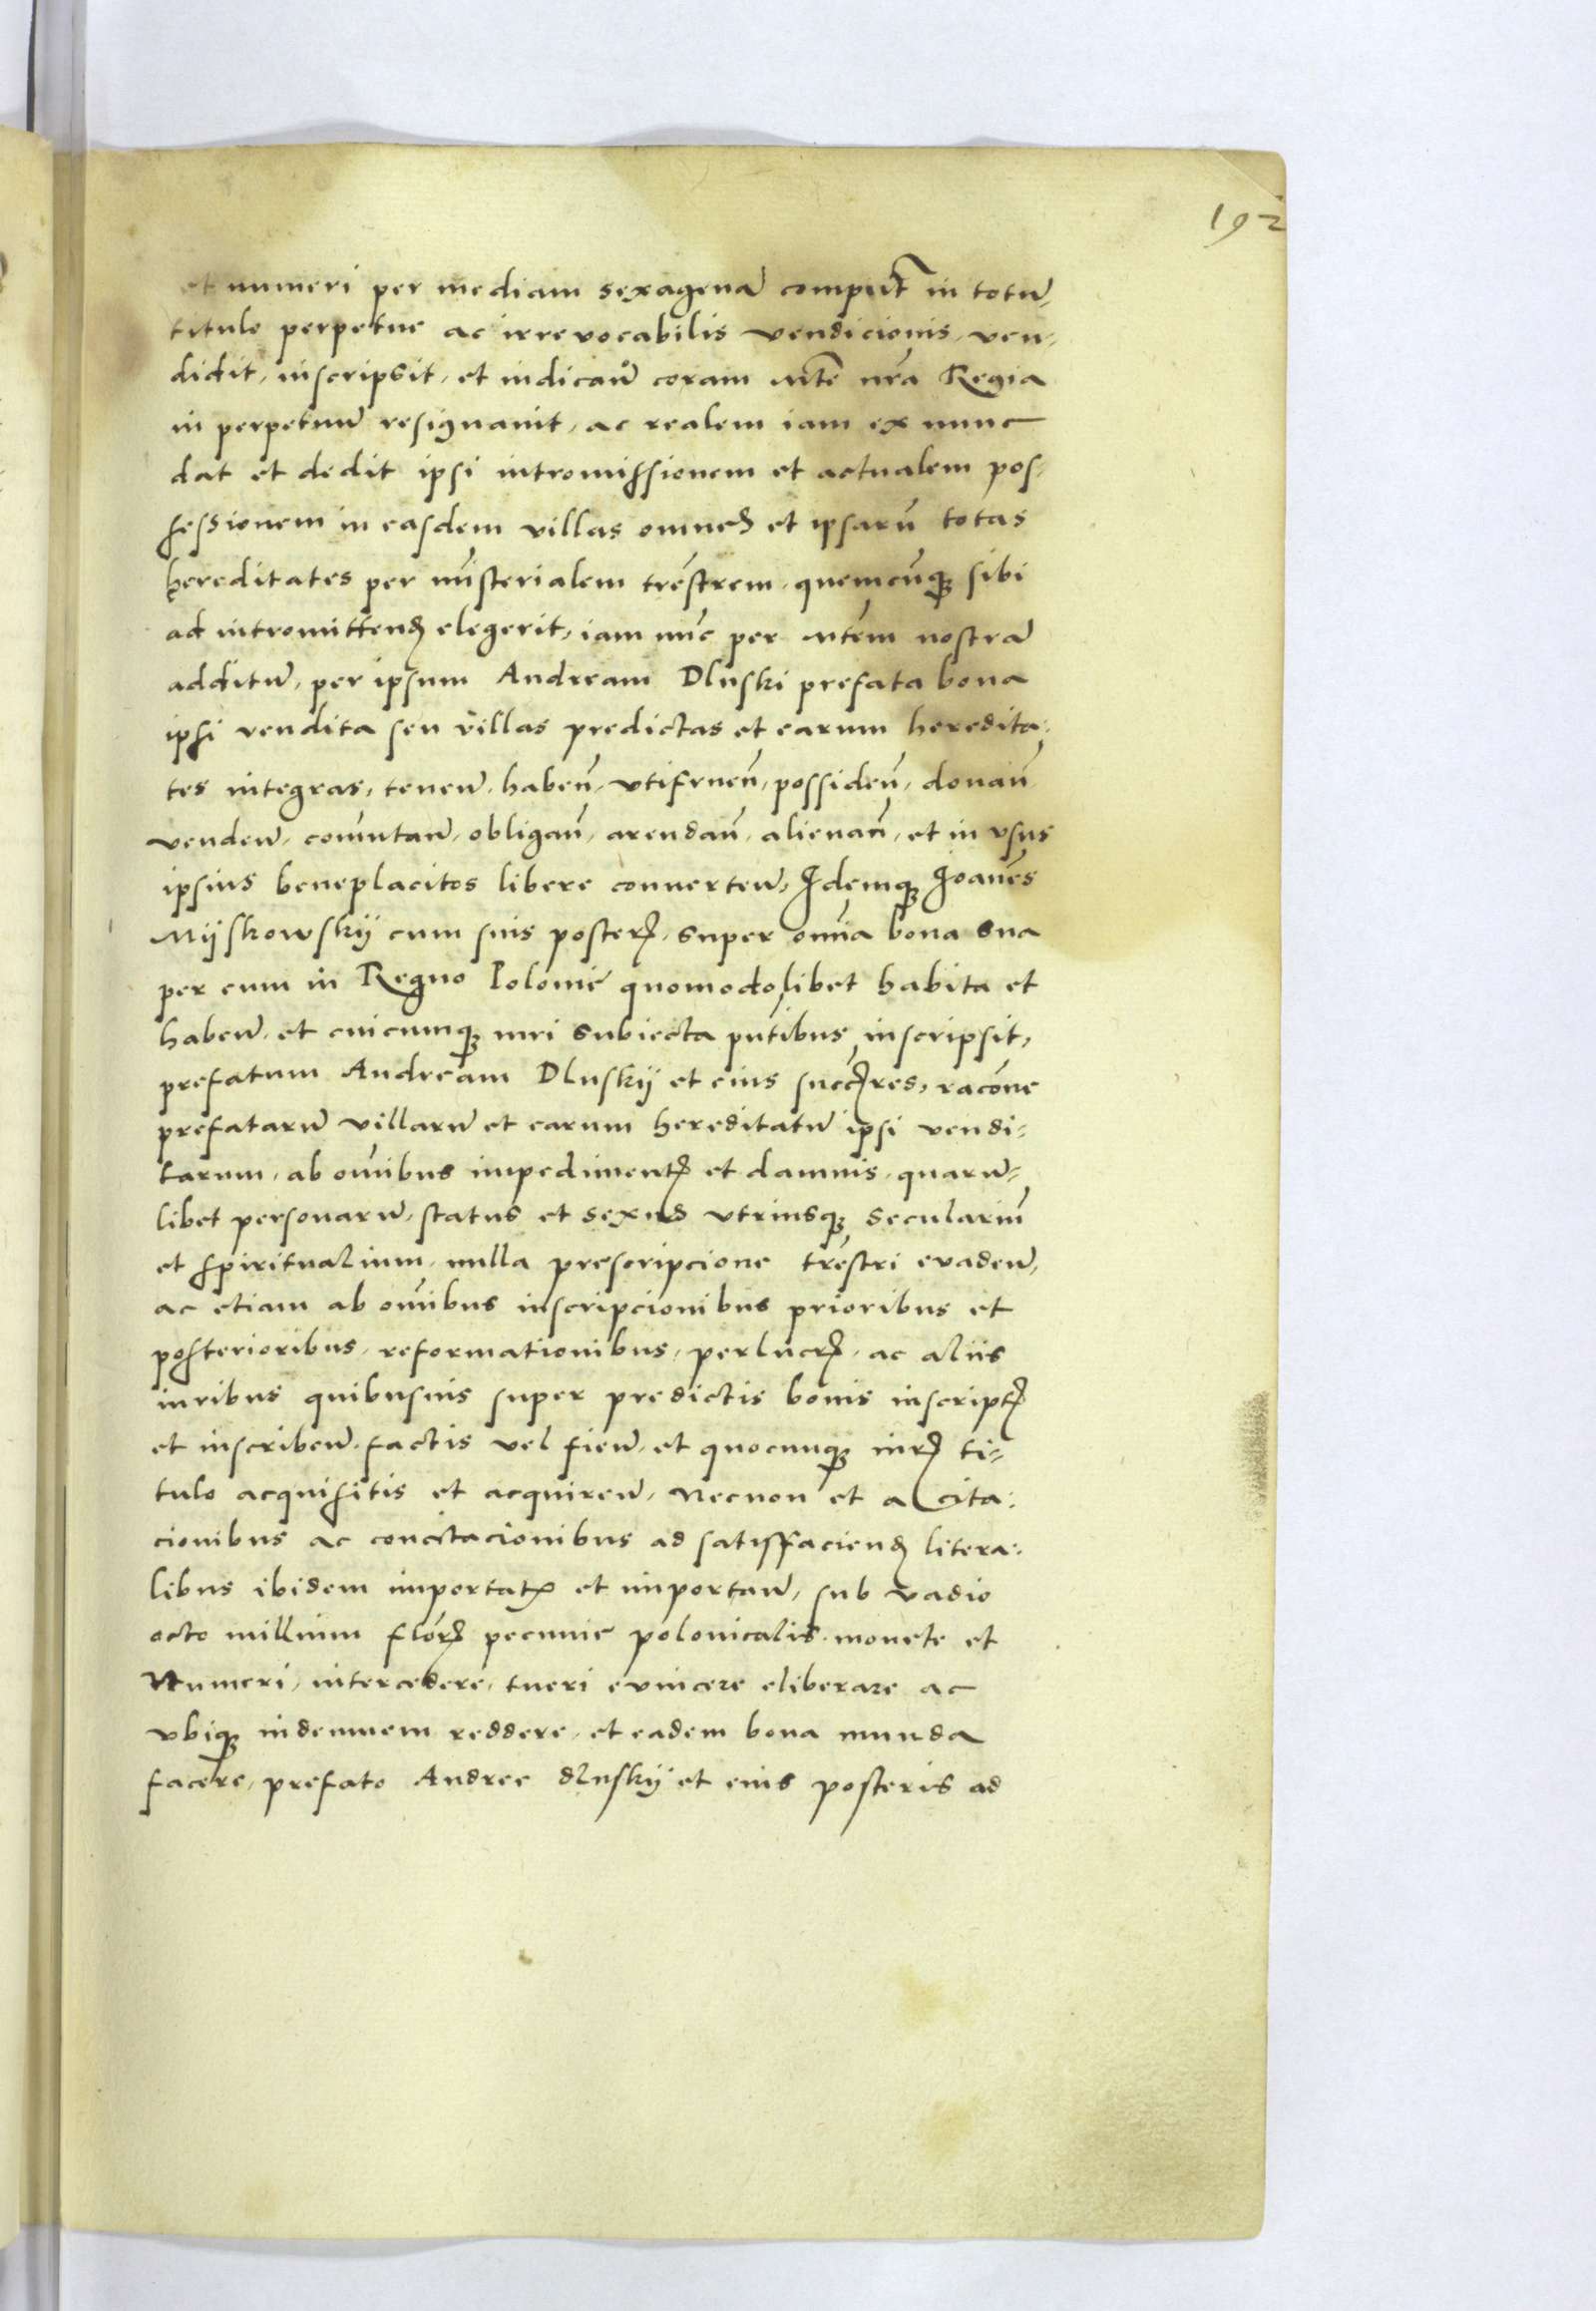 192
et numeri per mediam sexagenā comput̄ in totū,
titulo perpetue ac irrevocabilis vendicionis, ven-
didit, inscripsit, et indicaū coram Mte nra Regia
in perpetuū resignauit, ac realem iam ex nunc
dat et dedit ipsi intromissionem et actualem pos-
sessionem in easdem villas omnes et ipsarū totas
hereditates per misterialem trēstrem, quemcūq₃ sibi
ad intromittend elegerit, iam nūc per Mtem nostrā
additū, per ipsum Andream Dluski prefata bona
ipsi vendita seu villas predictas et earum heredita-
tes integras, tenen̄, haben̄, vtifruen̄, possiden̄, donan̄
venden̄, com̄utan̄, obligan̄, arendan̄, alienan̄, et in vsus
ipsius beneplacitos libere conuerten̄, Idemq₃ Ioan̄es
Mijskowskij cum suis poster₎, super om̄ia bona sua
per eum in Regno Polonie quomodolibet habita et
haben̄, et cuicumq₃ iuri subiecta pn̄tibus inscripsit,
prefatum Andream Dluskij et eius succ₎res, racōne
prefatarū villarū et earum hereditatū ipsi vendi-
tarum, ab om̄ibus impediment₎ et damnis, quarū-
libet personarū, status et sexus vtriusq₃ secularium̄
et spiritualium, nulla prescripcione trēstri evaden̄,
ac etiam ab om̄ibus inscripcionibus prioribus et
posterioribus, reformationibus, perlucr₎, ac aliis
iuribus quibusuis super predictis bonis inscript₎
et inscriben̄, factis vel fien̄, et quocunq₃ iur₎ ti-
tulo acquisitis et acquiren̄, Necnon et a cita-
cionibus ac concitacionibus ad satisfaciend litera-
libus ibidem importat₎ et importan̄, sub vadio
octo millium flor₎ pecunie polonicalis, monete et
Numeri, intercedere, tueri evincere eliberare ac
vbiq₃ indemnem reddere, et eadem bona munda
facere, prefato Andree dluskij et eius posteris ad